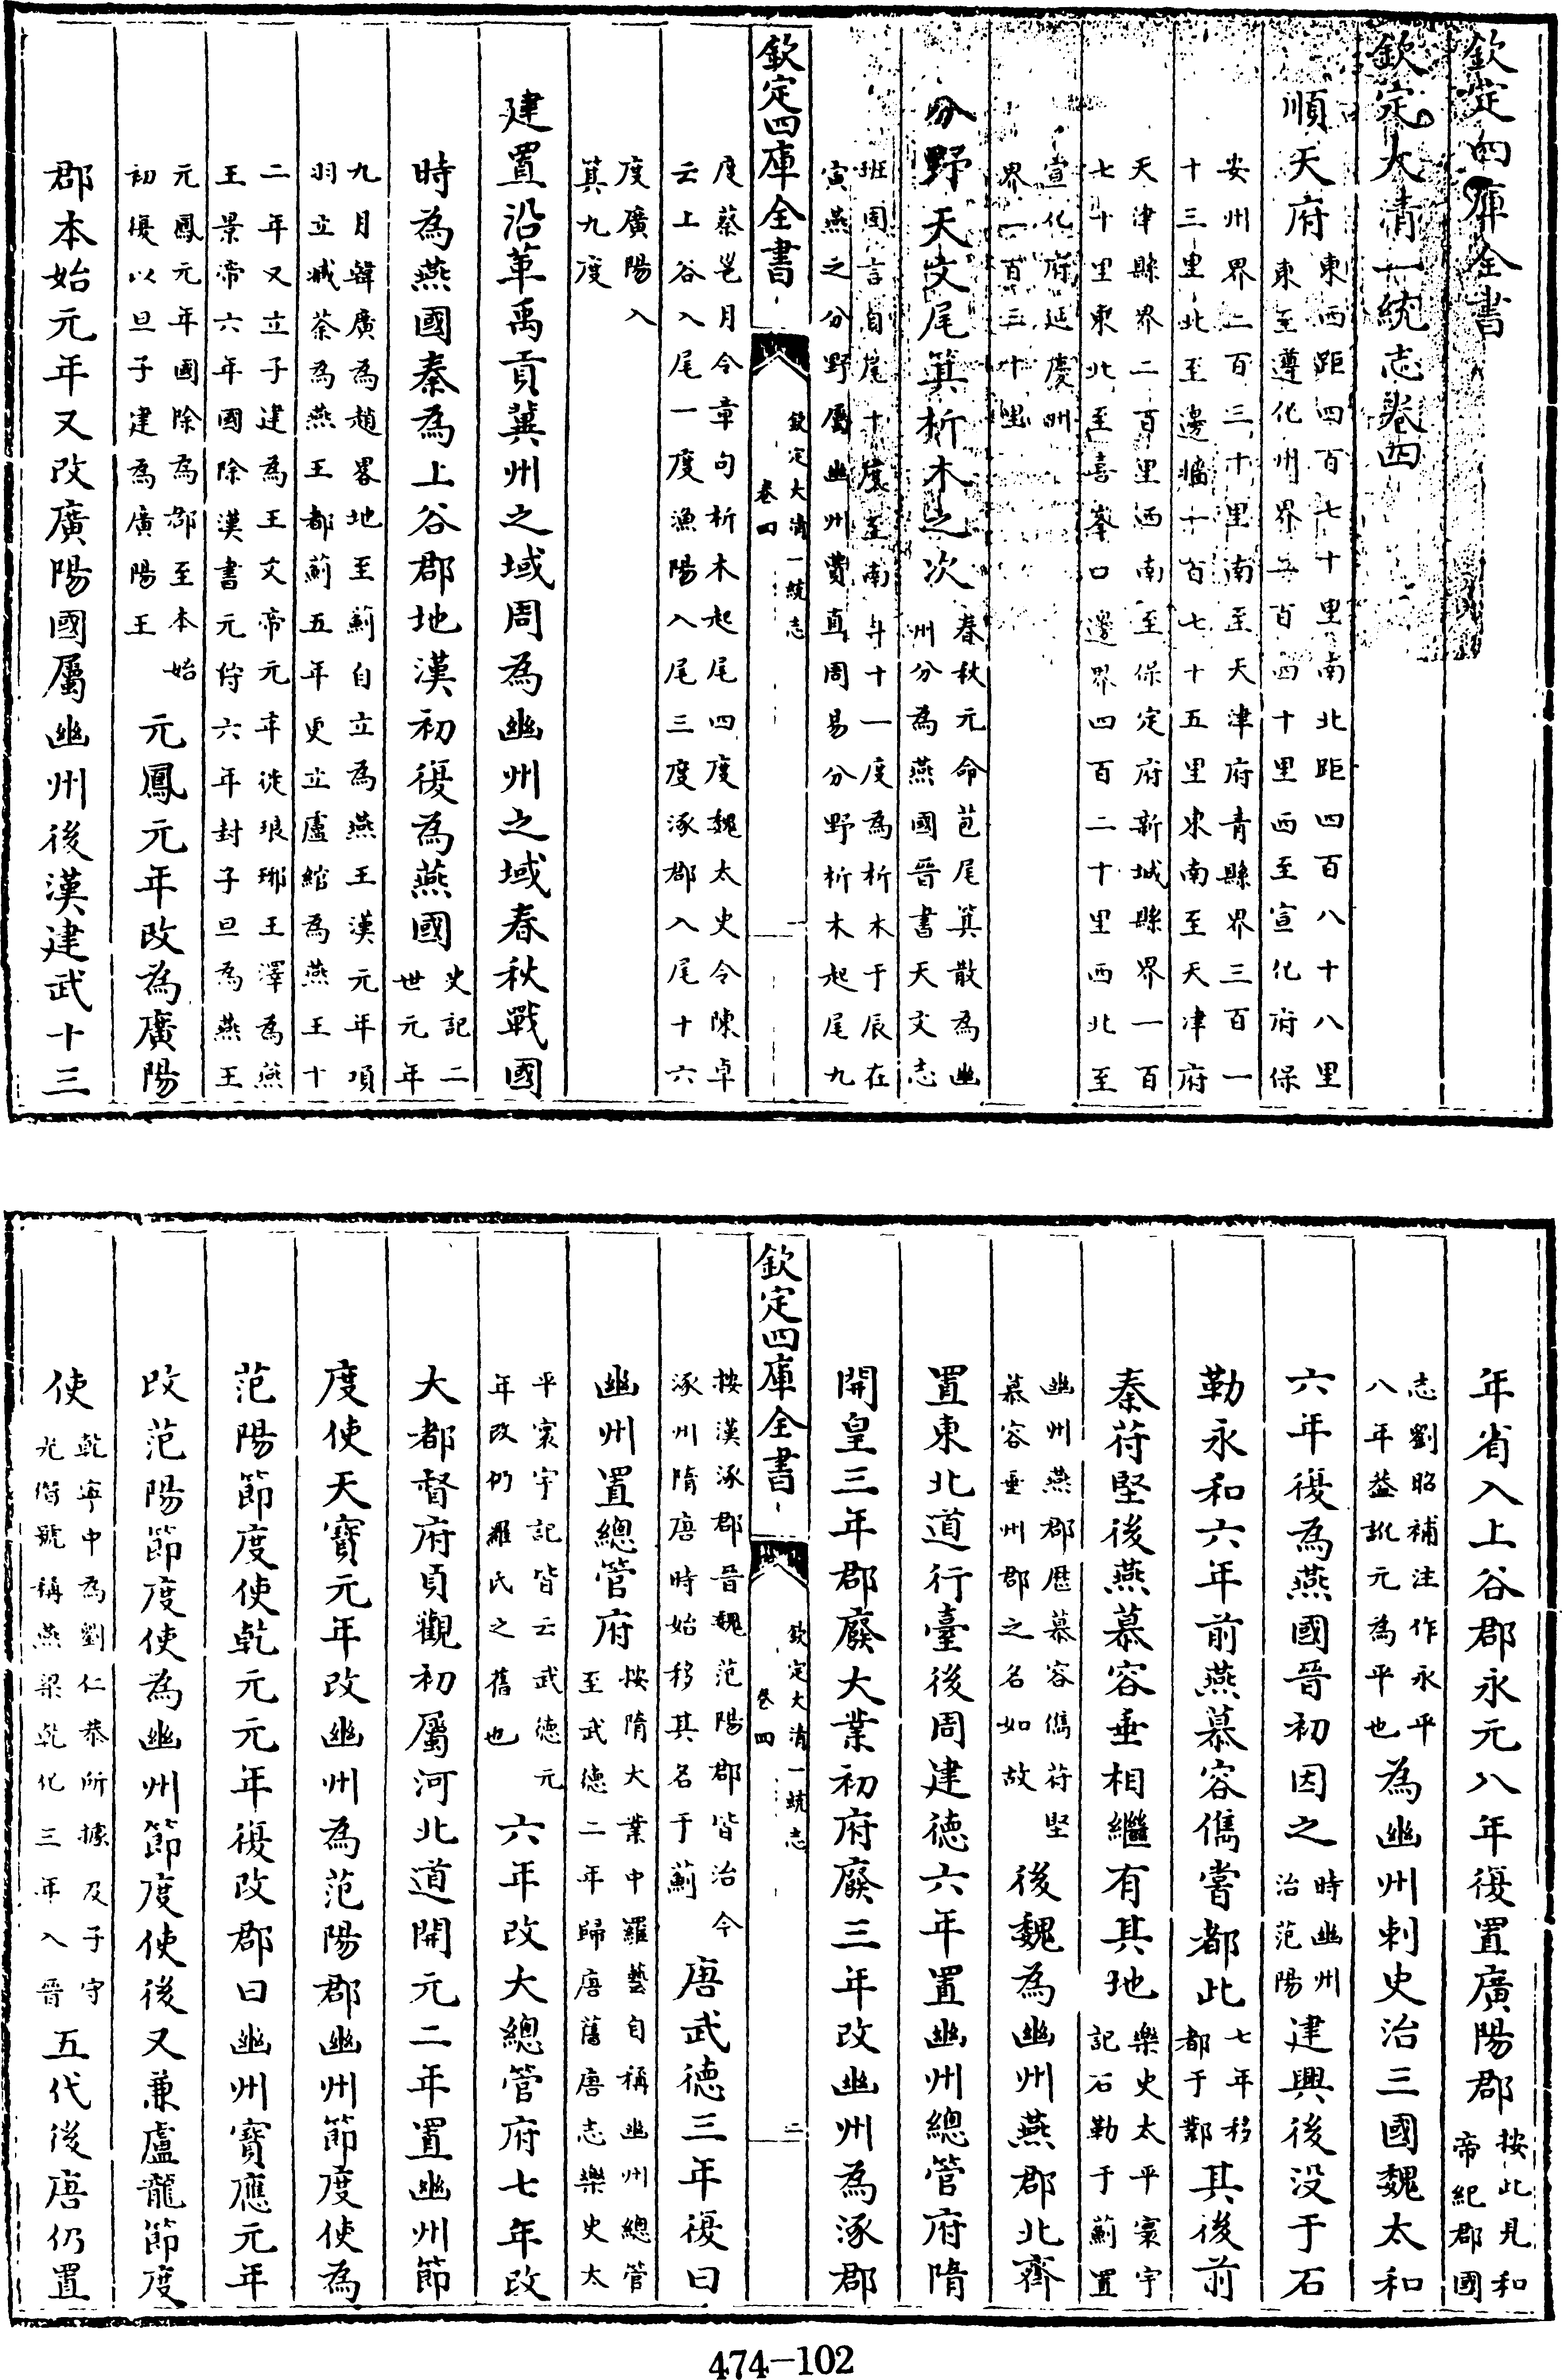 欽定四庫全書
欽定大清一統志卷四
順天府東西距四百七十里南北距四百八十八里東至遵化州界二百四十里西至宣化府保
安州界二百三十里南至天津府青縣界三百一十三里北至邊牆一百七十五里東南至天津府
天津縣界二百里西南至保定府新城縣界一百七十里東北至喜峯口邊界四百二十里西北至
宣化府延慶州界一百三十里
分野天文尾箕析木之次春秋元命苞尾箕散為幽州分為燕國晉書天文志
班固言自尾十度至南斗十一度為析木于辰在寅燕之分野屬幽州費直周易分野析木起尾九
欽定四庫全書 欽定大清一統志 卷四 一
度蔡邕月令章句析木起尾四度魏太史令陳卓云上谷入尾一度漁陽入尾三度涿郡入尾十六
度廣陽入箕九度
建置沿革禹貢冀州之域周為幽州之域春秋戰國
時為燕國秦為上谷郡地漢初復為燕國史記二世元年
九月韓廣為趙畧地至薊自立為燕王漢元年項羽立臧荼為燕王都薊五年更立盧綰為燕王十
二年又立子建為王文帝元年徙琅琊王澤為燕王景帝六年國除漢書元狩六年封子旦為燕王
元鳳元年國除為郡至本始初復以旦子建為廣陽王元鳳元年改為廣陽
郡本始元年又改廣陽國屬幽州後漢建武十三
年省入上谷郡永元八年復置廣陽郡按此見和帝紀郡國
志劉昭補注作永平八年葢訛元為平也為幽州刺史治三國魏太和
六年復為燕國晉初因之時幽州治范陽建興後没于石
勒永和六年前燕慕容儁嘗都此七年移都于鄴其後前
秦苻堅後燕慕容垂相繼有其地樂史太平寰宇記石勒于薊置
幽州燕郡歷慕容儁苻堅慕容垂州郡之名如故後魏為幽州燕郡北齊
置東北道行臺後周建德六年置幽州總管府隋
開皇三年郡廢大業初府廢三年改幽州為涿郡
欽定四庫全書 欽定大清一統志 卷四 二
按漢涿郡晉魏范陽郡皆治今涿州隋唐時始移其名于薊唐武德三年復曰
幽州置總管府按隋大業中羅藝自稱幽州總管至武德二年歸唐舊唐志樂史太
平寰宇記皆云武德元年改仍羅氏之舊也六年改大總管府七年改
大都督府貞觀初屬河北道開元二年置幽州節
度使天寶元年改幽州為范陽郡幽州節度使為
范陽節度使乾元元年復改郡曰幽州寶應元年
改范陽節度使為幽州節度使後又兼盧龍節度
使乾寧中為劉仁恭所據及子守光僭號稱燕梁乾化三年入晉五代後唐仍置
474-102